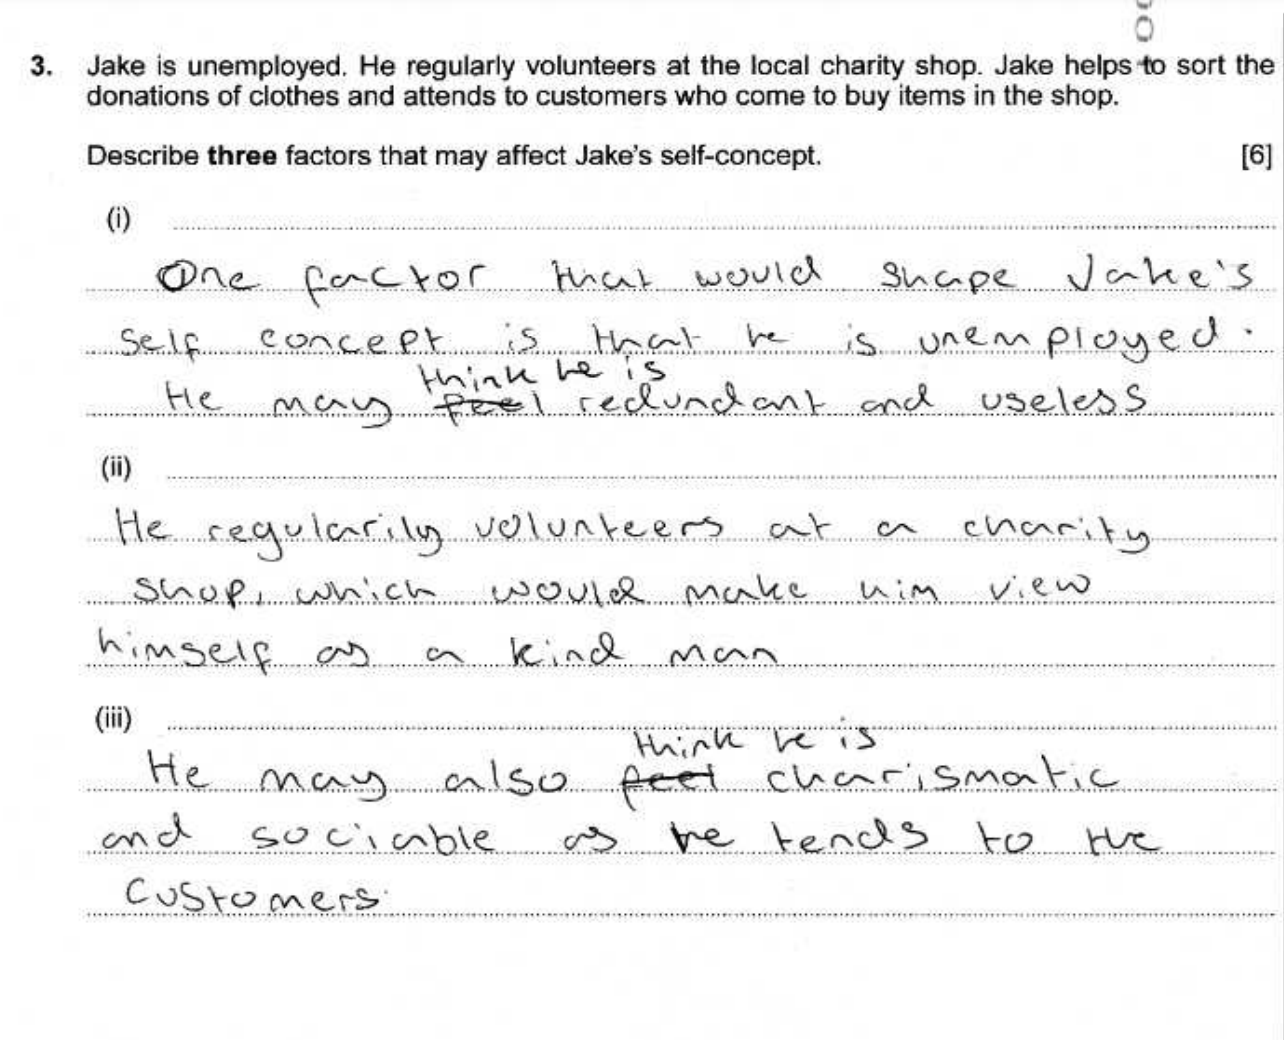 3. Jake is unemployed. He regularly volunteers at the local charity shop. Jake helps to sort the
donations of clothes and attends to customers who come to buy items in the shop.
Describe three factors that may affect Jake's self-concept. [6]
(i)
One factor that would shape Jake's
self concept is that he is unemployed.
think he is
He may feel redundant and useless
(ii)
He regularily volunteers at a charity
shop, which would make him view
himself as a kind man
(iii)
think he is
He may also feel charismatic
and sociable as he tends to the
customers.